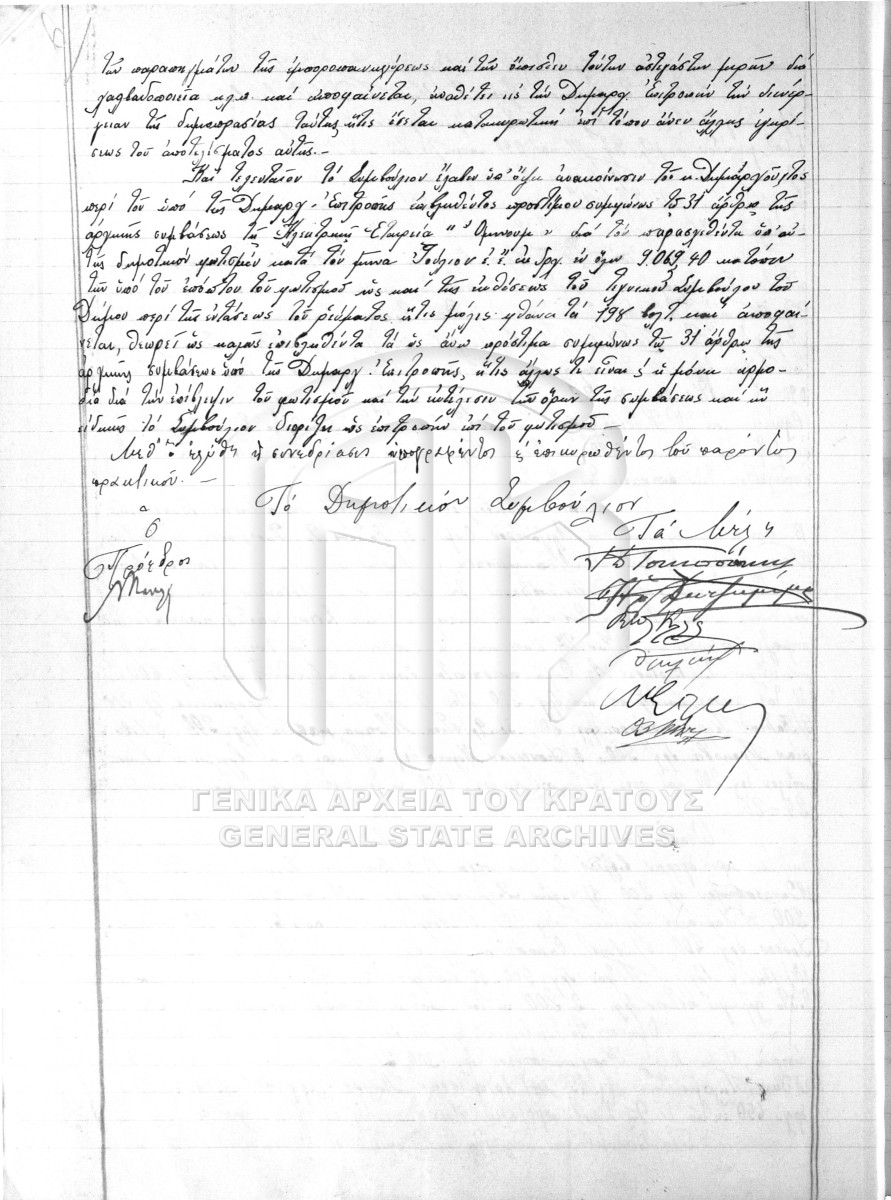 τῶν παραπηγμάτων τῆς ἐμποροπανηγύρεως καὶ τῶν ὄπισθεν τούτων ἀστεγάστων μερῶν διὰ
χαλβαδοποιεῖα κ.λ.π. καὶ ἀποφαίνεται, ἀναθέτει εἰς τὴν Δημαρχ. Ἐπιτροπὴν τὴν διενέρ-
γειαν τῆς δημοπρασίας ταύτης ἥτις ἔσεται κατακυρωτικὴ ἐπὶ τόπου ἄνευ ἄλλης ἐγκρί-
σεως τοῦ ἀποτελέσματος αὐτῆς.—
Κατ' τελευταῖον τὸ Συμβούλιον ἔλαβεν ὑπ' ὄψει ἀνακοίνωσιν τοῦ κ. Δημαρχοῦντος
περὶ τοῦ ὑπὸ τῆς Δημαρχ. Ἐπιτροπῆς ἐπιβληθέντος προστίμου συμφώνως τῷ 31 ἄρθρῳ τῆς
ἀρχικῆς συμβάσεως τῇ Ἠλεκτρικῇ Ἑταιρείᾳ "Ὄμνιουμ" διὰ τὸν παρασχεθέντα ὑπ' αὐ-
τῆς δημοτικὸν φωτισμὸν κατὰ τὸν μῆνα Ἰούλιον ἐ.ἔ. ἐκ δρχ. ἐν ὅλῳ 9.069,40 κατόπιν
τῶν ὑπὸ τοῦ ἐπόπτου τοῦ φωτισμοῦ ὡς καὶ τῆς ἐκθέσεως τοῦ Τεχνικοῦ Συμβούλου τοῦ
Δήμου περὶ τῆς ἐντάσεως τοῦ ῥεύματος ἥτις μόλις φθάνει τὰ 198 βόλτ, καὶ ἀποφαί-
νεται, θεωρεῖ ὡς καλῶς ἐπιβληθέντα τὰ ὡς ἄνω πρόστιμα συμφώνως τῷ 31 ἄρθρῳ τῆς
ἀρχικῆς συμβάσεως ὑπὸ τῆς Δημαρχ. Ἐπιτροπῆς, ἥτις ἄλλως τε εἶναι ἡ μόνη ἁρμο-
δία διὰ τὴν ἐπίβλεψιν τοῦ φωτισμοῦ καὶ τὴν ἐκτέλεσιν τῶν ὅρων τῆς συμβάσεως καὶ ἣν
εἰδικῶς τὸ Συμβούλιον διορίζει ὡς ἐπιτροπὴν ἐπὶ τοῦ φωτισμοῦ.—
Μεθ' ὃ ἐλύθη ἡ συνεδρίασις ὑπογραφέντος & ἐπικυρωθέντος τοῦ παρόντος
πρακτικοῦ.—
Τὸ Δημοτικὸν Συμβούλιον
Ὁ
Πρόεδρος
Τὰ Μέλη
ΓΕΝΙΚΑ ΑΡΧΕΙΑ ΤΟΥ ΚΡΑΤΟΥΣ
GENERAL STATE ARCHIVES